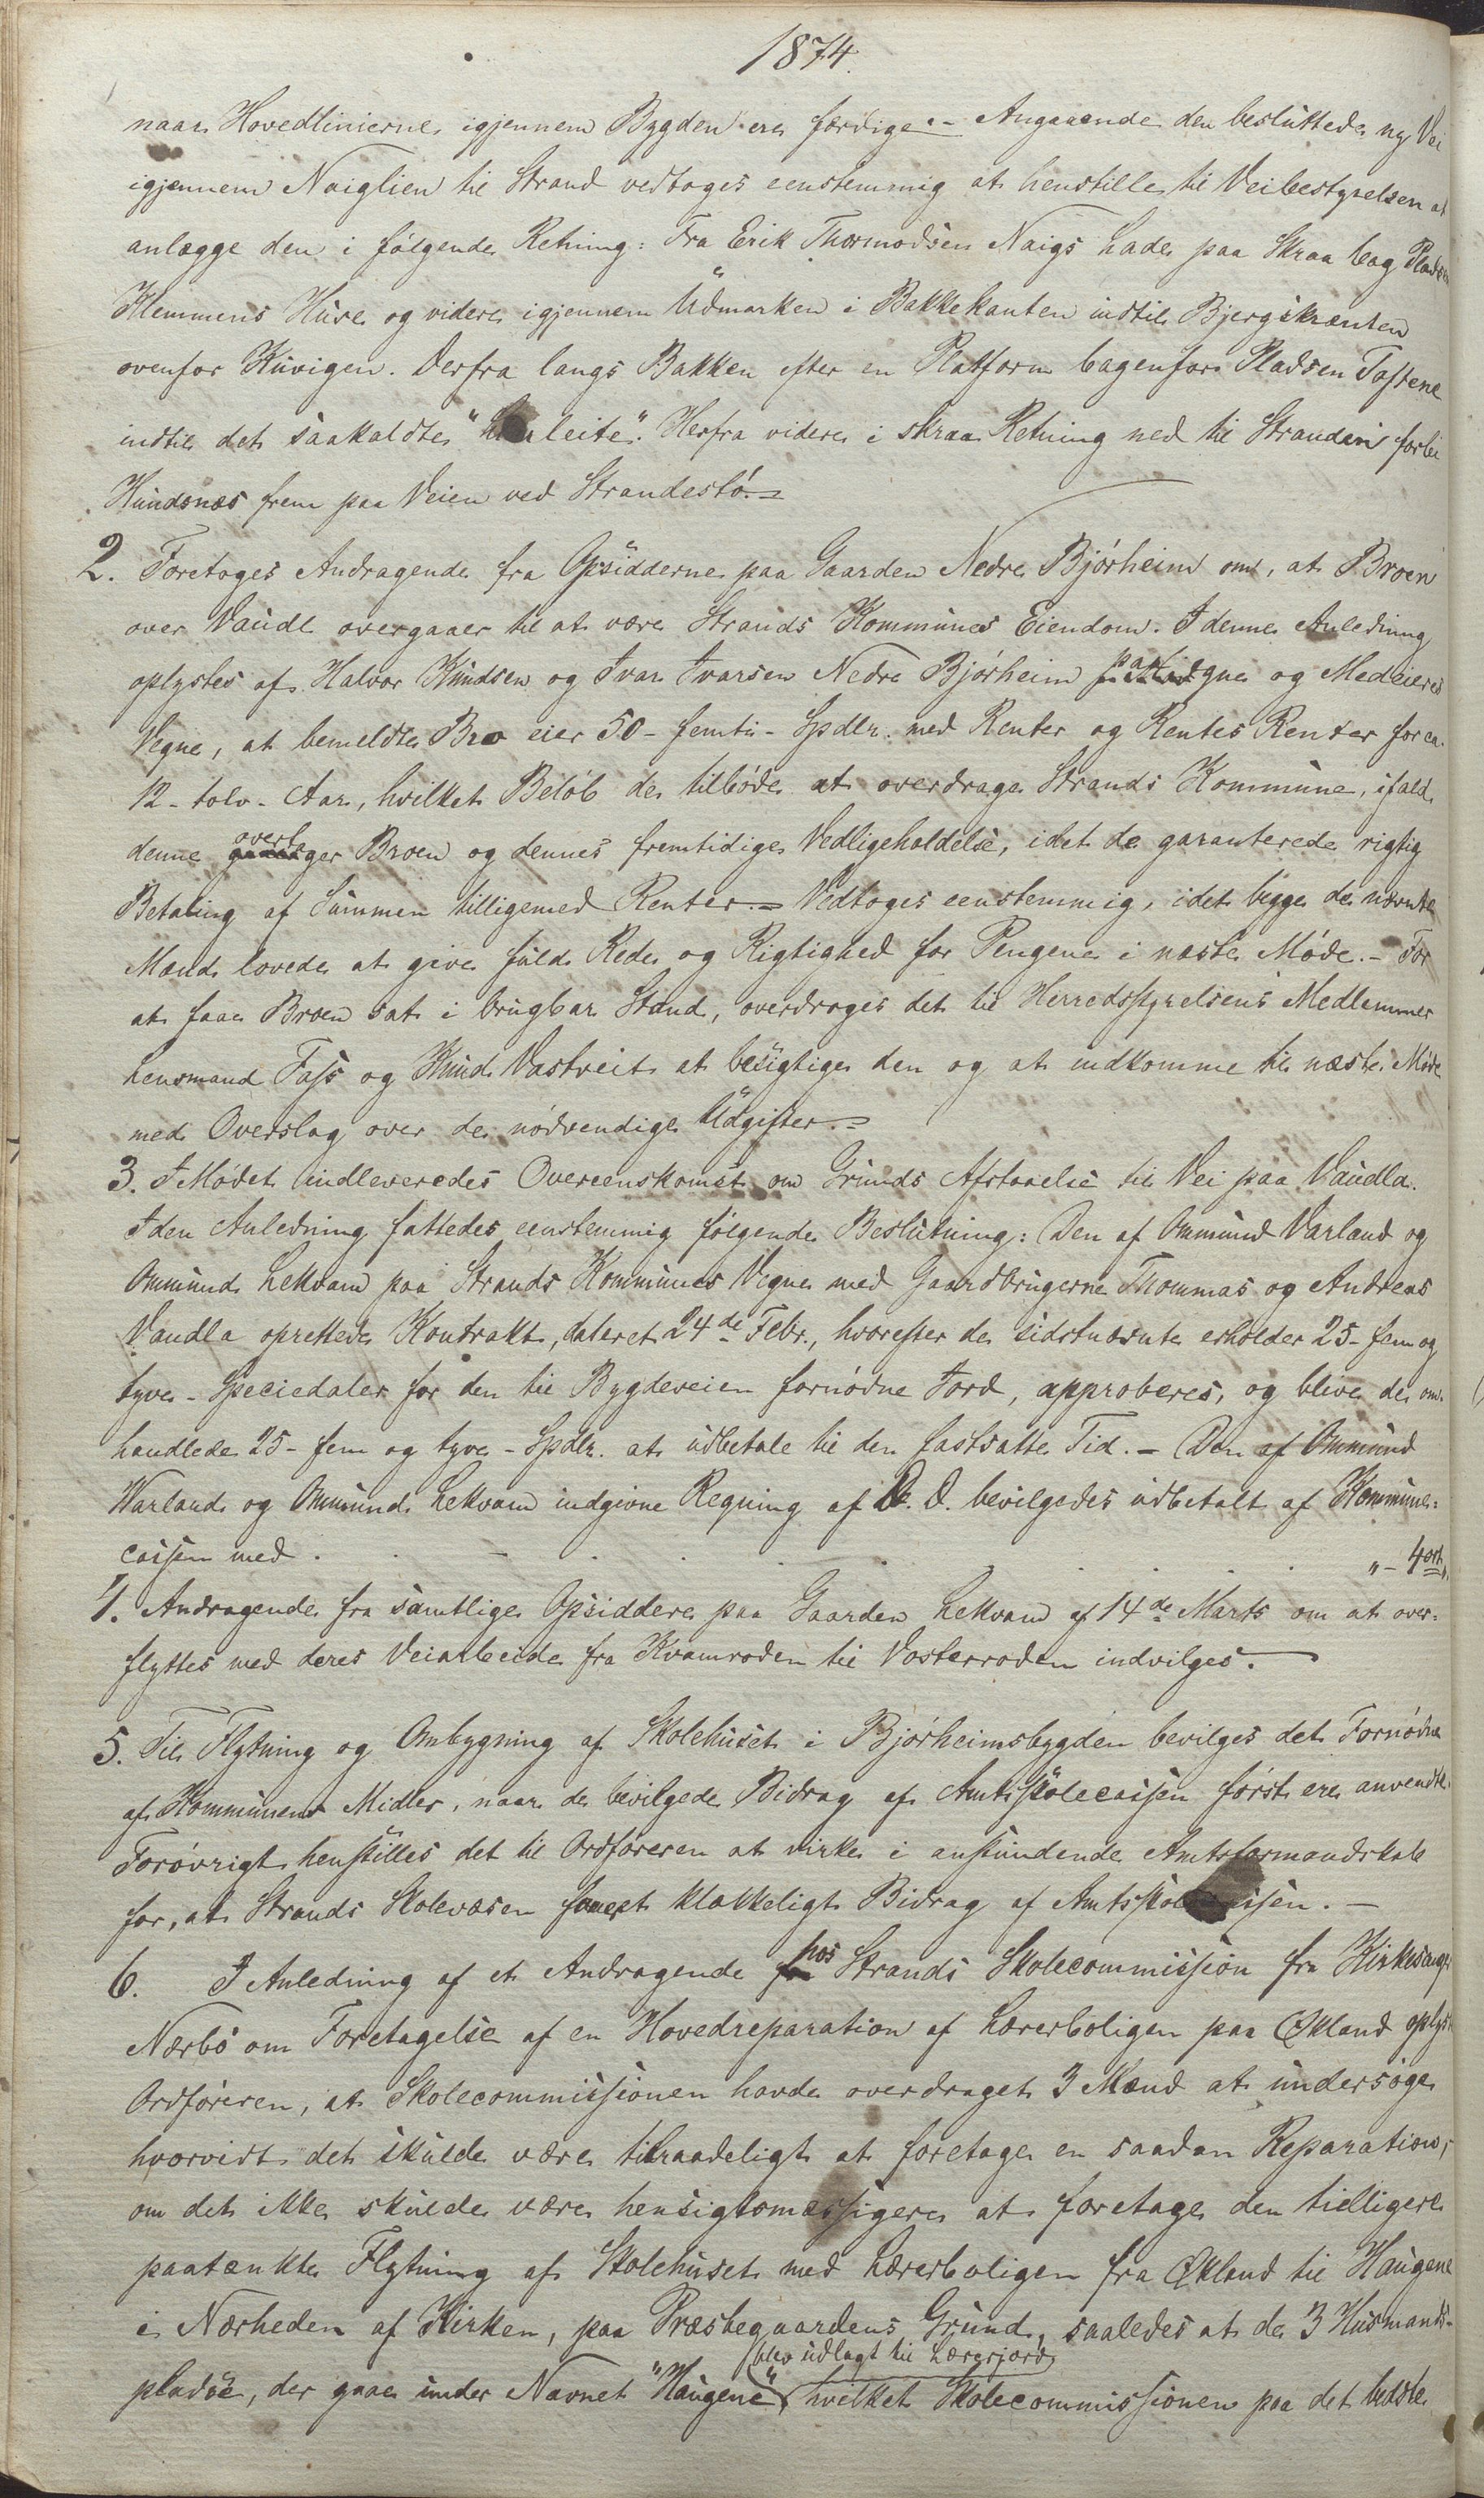 1874.
naar Hovedlinierne igjennem Bygden ere færdige. – Angaaende den besluttede ny Vei
igjennem Naiglien til Strand vedtoges eenstemmig at henstille til Veibestyrelsen at
anlægge den i følgende Retning: Fra Erik Thormodsen Naigs Lade paa Skraa bag Pladsen
Klemmens Huse og videre igjennem Udmarken i Bakkekanten indtil Bjergskrænten
ovenfor Kuvigen. Derfra langs Bakken efter en Platform bagenfor Pladsen Tastene
indtil det saakaldte leite". Herfra videre i skraa Retning ned til Stranden forbi
Hundsnæs frem paa Veien ved Strandestø. –
2. Foretoges Andragende fra Opsidderne paa Gaarden Nedre Bjørheim om, at Broen
over Vaudl overgaaer til at være Strands Kommunes Eiendom. I denne Anledning
oplystes af Halvor Knudsen og Ivar Ivarsen Nedre Bjørheim paa Egne og Medeieres
Vegne, at bemeldte Bro eier 50 – femti – Spdlr. med Renter og Rentes Renter for ca.
12 – tolv – Aar, hvilket Beløb de tilbøde at overdrage Strands Kommune, ifald
denne overtager Broen og dennes fremtidige Vedligeholdelse, idet de garanterede rigtig
Betaling af Summen tilligemed Renter. – Vedtoges eenstemmig, idet begge de nævnte
Mænd lovede at give fuld Rede og Rigtighed for Pengene i næste Møde. – For
at faae Broen sat i brugbar Stand, overdroges det til Herredsstyrelsens Medlemmer
Lensmand Fass og Knud Vastveit at besigtige den og at indkomme til næste Møde
med Overslag over de nødvendige Udgifter. –
3. I Mødet indleveredes Overeenskomst om Grunds Afstaaelse til Vei paa Vaudla.
I den Anledning fattedes eenstemmig følgende Beslutning: Den af Ommund Varland og
Ommund Lekvam paa Strands Kommunes Vegne med Gaardbrugerne Thommas og Andreas
Vaudla oprettede Kontrakt, dateret 24de Febr., hvorefter de sidstnævnte erholder 25 – fem og
tyve – Speciedaler for den til Bygdeveien fornødne Jord, approberes, og blive de om-
handlede 25 – fem og tyve – Spdlr. at udbetale til den fastsatte Tid. – Den af Ommund
Warland og Ommund Lekvam indgivne Regning af D. D. bevilgedes udbetalt af Kommune-
cassen med . . . . . . . . . " – 4 ort "
4. Andragende fra samtlige Opsiddere paa Gaarden Lekvam af 14de Marts om at over-
flyttes med deres Veiarbeide fra Kvamroden til Vosterroden indvilges. –
5. Til Flytning og Ombygning af Skolehuset i Bjørheimsbygden bevilges det Fornødne
af Kommunens Midler, naar de bevilgede Bidrag af Amtsskolecassen først ere anvendte.
Forøvrigt henstilles det til Ordføreren at virke i anstundende Amtsformandskab
for, at Strands Skolevæsen faaer et klækkeligt Bidrag af Amtsskolecassen. –
6. I Anledning af et Andragende hos Strands Skolecommission fra Kirkesanger
Nærbø om Foretagelse af en Hovedreparation af Lærerboligen paa Økland oplyste
Ordføreren, at Skolecommissionen havde overdraget 3 Mænd at undersøge
hvorvidt det skulde være tilraadeligt at foretage en saadan Reparation,
om det ikke skulde være hensigtsmæssigere at foretage den tidligere
paatænkte Flytning af Skolehuset med Lærerboligen fra Økland til Haugene
i Nærheden af Kirken, paa Præstegaardens Grund, saaledes at de 3 Husmands-
pladse, der gaae under Navnet "Haugene" blev udlagt til Lærerjord, hvilket Skolecommissionen paa det bedste